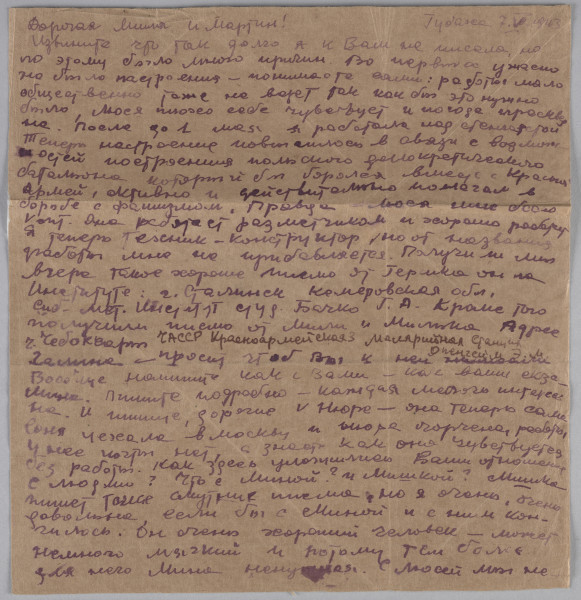 Дорогая Мина и Мартин! Губаха 2.VI 1943
Извините что так долго я к Вам не писала, но
по этому было много причин Во первых ужасно
не было настроения – понимаете сами: работы мало
общественно тоже не ведет так как бы это нужно
было Люся плохо себе чувствует и погода
на. После до 1 мая я работала над стенгазетой
Теперь настроение повысилось в связи с возмож-
ностей построения польского демократического
батальона который бы боролся вместе с Красной
армией, активно и действительно помогам в
борьбе с фашизмом. Правда – Люся мне
Она работает разметчиком и хорошо
Я теперь Техник-конструктор, но от названия
работы мне не прибавляется. Получили мы
вчера такое хорошее письмо от Герика он на
Институте: г. Сталинск Кемеровская обл.
Сиб. Мет. Институт студ. Бачко Г. А. Кроме того
получили письмо от Мили и Милька Адрес
г. Чебоксары ЧАССР Красноармейская Малярийная станция
Галина – просит чтоб Вы к ней
Вообще напишите как с Вами – как ваши экза-
мина. Пишите подробно – каждая мелочь интерес-
на. И пишите, дорогие к Нюре – она теперь сама
Соня уехала в Москву и Нюра огорчена, работы
у нее почти нет, а знаете как она чувствуется
без работы. Как здесь уложились Ваши отношения
с людми? Что с Миной? и Мишкой? Мишка
пишет тоже смутные письма, но я очень, очень
довольна если бы с Миной и с ним кон-
чилось. Он очень хороший человек – может
немного мягкий и потому тем более
для него Мина ненужная. С Люсей мы не